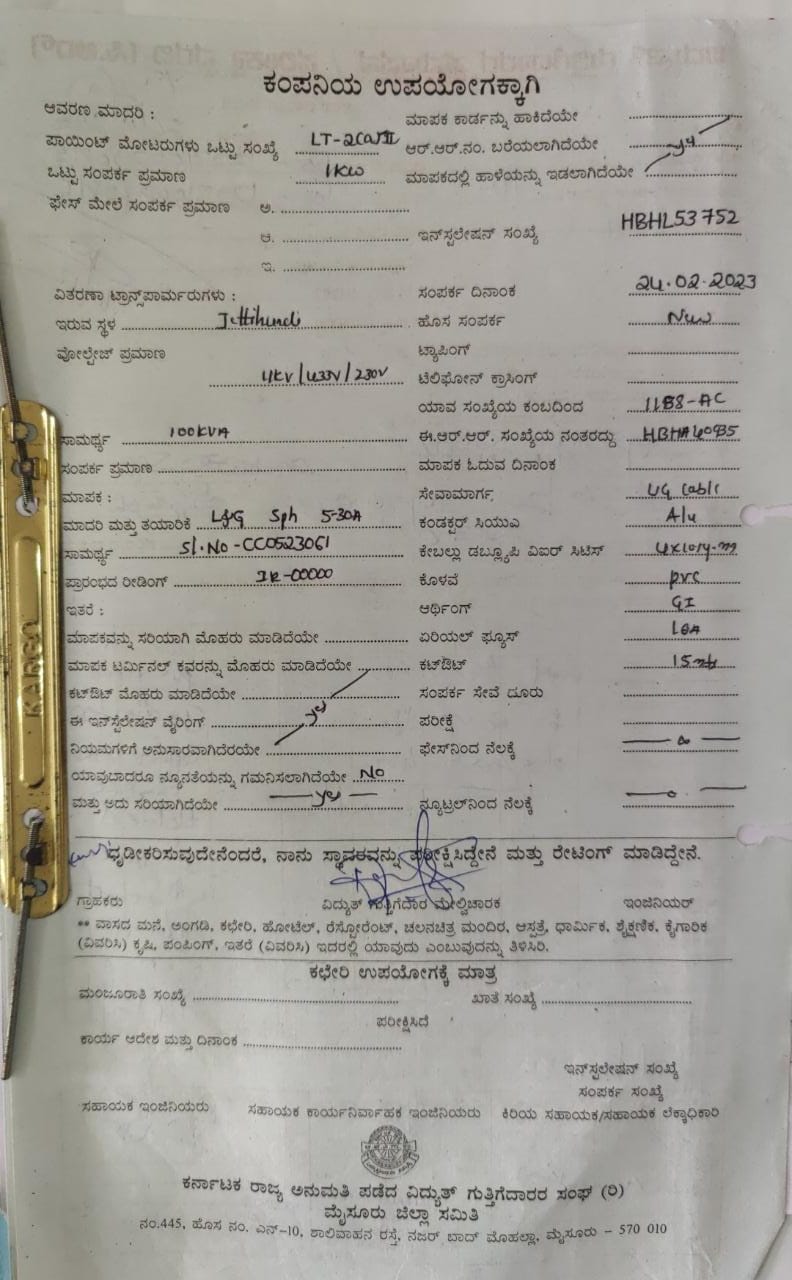 ಕಂಪನಿಯ ಉಪಯೋಗಕ್ಕಾಗಿ
ಆವರಣ ಮಾದರಿ : ಮಾಪಕ ಕಾರ್ಡನ್ನು ಹಾಕಿದೆಯೇ
ಪಾಯಿಂಟ್ ಮೋಟರುಗಳು ಒಟ್ಟು ಸಂಖ್ಯೆ ಆರ್.ಆರ್.ನಂ. ಬರೆಯಲಾಗಿದೆಯೇ
ಒಟ್ಟು ಸಂಪರ್ಕ ಪ್ರಮಾಣ 1KW ಮಾಪಕದಲ್ಲಿ ಹಾಳೆಯನ್ನು ಇಡಲಾಗಿದೆಯೇ
ಫೇಸ್ ಮೇಲೆ ಸಂಪರ್ಕ ಪ್ರಮಾಣ ಅ.
ಆ. ಇನ್‌ಸ್ಟಲೇಷನ್ ಸಂಖ್ಯೆ HBHL53752
ಇ.
ವಿತರಣಾ ಟ್ರಾನ್ಸ್‌ಪಾರ್ಮರುಗಳು : ಸಂಪರ್ಕ ದಿನಾಂಕ 24.02.2023
ಇರುವ ಸ್ಥಳ Jettihundi ಹೊಸ ಸಂಪರ್ಕ New
ವೋಲ್ಟೇಜ್ ಪ್ರಮಾಣ ಟ್ಯಾಪಿಂಗ್
ಟೆಲಿಫೋನ್ ಕ್ರಾಸಿಂಗ್
ಯಾವ ಸಂಖ್ಯೆಯ ಕಂಬದಿಂದ
ಸಾಮರ್ಥ್ಯ 100KVA ಈ.ಆರ್.ಆರ್. ಸಂಖ್ಯೆಯ ನಂತರದ್ದು
ಸಂಪರ್ಕ ಪ್ರಮಾಣ ಮಾಪಕ ಓದುವ ದಿನಾಂಕ
ಮಾಪಕ : ಸೇವಾಮಾರ್ಗ UG Cable
ಮಾದರಿ ಮತ್ತು ತಯಾರಿಕೆ L&G Sph 5-30A ಕಂಡಕ್ಟರ್ ಸಿಯುಎ Alu
ಸಾಮರ್ಥ್ಯ Sl.No-CC0523061 ಕೇಬಲ್ಲು ಡಬ್ಲ್ಯೂಪಿ ವಿಐರ್ ಸಿಟಿಸ್
ಪ್ರಾರಂಭದ ರೀಡಿಂಗ್ IR-00000 ಕೊಳವೆ PVC
ಇತರೆ : ಆರ್ಥಿಂಗ್ GI
ಮಾಪಕವನ್ನು ಸರಿಯಾಗಿ ಮೊಹರು ಮಾಡಿದೆಯೇ ಏರಿಯಲ್ ಫ್ಯೂಸ್
ಮಾಪಕ ಟರ್ಮಿನಲ್ ಕವರನ್ನು ಮೊಹರು ಮಾಡಿದೆಯೇ ಕಟ್‌ಔಟ್
ಕಟ್‌ಔಟ್ ಮೊಹರು ಮಾಡಿದೆಯೇ ಸಂಪರ್ಕ ಸೇವೆ ದೂರು
ಈ ಇನ್‌ಸ್ಟಲೇಷನ್ ವೈರಿಂಗ್ yes ಪರೀಕ್ಷೆ
ನಿಯಮಗಳಿಗೆ ಅನುಸಾರವಾಗಿದೆರಯೇ ಫೇಸ್‌ನಿಂದ ನೆಲಕ್ಕೆ
ಯಾವುಬಾದರೂ ನ್ಯೂನತೆಯನ್ನು ಗಮನಿಸಲಾಗಿದೆಯೇ No
ಮತ್ತು ಅದು ಸರಿಯಾಗಿದೆಯೇ yes ನ್ಯೂಟ್ರಲ್‌ನಿಂದ ನೆಲಕ್ಕೆ
ಧೃಡೀಕರಿಸುವುದೇನೆಂದರೆ, ನಾನು ಸ್ಥಾವರವನ್ನು ಪರೀಕ್ಷಿಸಿದ್ದೇನೆ ಮತ್ತು ರೇಟಿಂಗ್ ಮಾಡಿದ್ದೇನೆ.
ಗ್ರಾಹಕರು ವಿದ್ಯುತ್ ಗುತ್ತಿಗೆದಾರ ಮೇಲ್ವಿಚಾರಕ ಇಂಜಿನಿಯರ್
** ವಾಸದ ಮನೆ, ಅಂಗಡಿ, ಕಛೇರಿ, ಹೋಟೆಲ್, ರೆಸ್ಟೋರೆಂಟ್, ಚಲನಚಿತ್ರ ಮಂದಿರ, ಆಸ್ಪತ್ರೆ, ಧಾರ್ಮಿಕ, ಶೈಕ್ಷಣಿಕ, ಕೈಗಾರಿಕ
(ವಿವರಿಸಿ) ಕೃಷಿ, ಪಂಪಿಂಗ್, ಇತರೆ (ವಿವರಿಸಿ) ಇದರಲ್ಲಿ ಯಾವುದು ಎಂಬುವುದನ್ನು ತಿಳಿಸಿರಿ.
ಕಛೇರಿ ಉಪಯೋಗಕ್ಕೆ ಮಾತ್ರ
ಮಂಜೂರಾತಿ ಸಂಖ್ಯೆ ಖಾತೆ ಸಂಖ್ಯೆ
ಪರೀಕ್ಷಿಸಿದೆ
ಕಾರ್ಯ ಆದೇಶ ಮತ್ತು ದಿನಾಂಕ
ಇನ್‌ಸ್ಟಲೇಷನ್ ಸಂಖ್ಯೆ
ಸಂಪರ್ಕ ಸಂಖ್ಯೆ
ಸಹಾಯಕ ಇಂಜಿನಿಯರು ಸಹಾಯಕ ಕಾರ್ಯನಿರ್ವಾಹಕ ಇಂಜಿನಿಯರು ಕಿರಿಯ ಸಹಾಯಕ/ಸಹಾಯಕ ಲೆಕ್ಕಾಧಿಕಾರಿ
ಕರ್ನಾಟಕ ರಾಜ್ಯ ಅನುಮತಿ ಪಡೆದ ವಿದ್ಯುತ್ ಗುತ್ತಿಗೆದಾರರ ಸಂಘ (ರಿ)
ಮೈಸೂರು ಜಿಲ್ಲಾ ಸಮಿತಿ
ನಂ.445, ಹೊಸ ನಂ. ಎನ್-10, ಶಾಲಿವಾಹನ ರಸ್ತೆ, ನಜರ್ ಬಾದ್ ಮೊಹಲ್ಲಾ, ಮೈಸೂರು – 570 010
KANGA